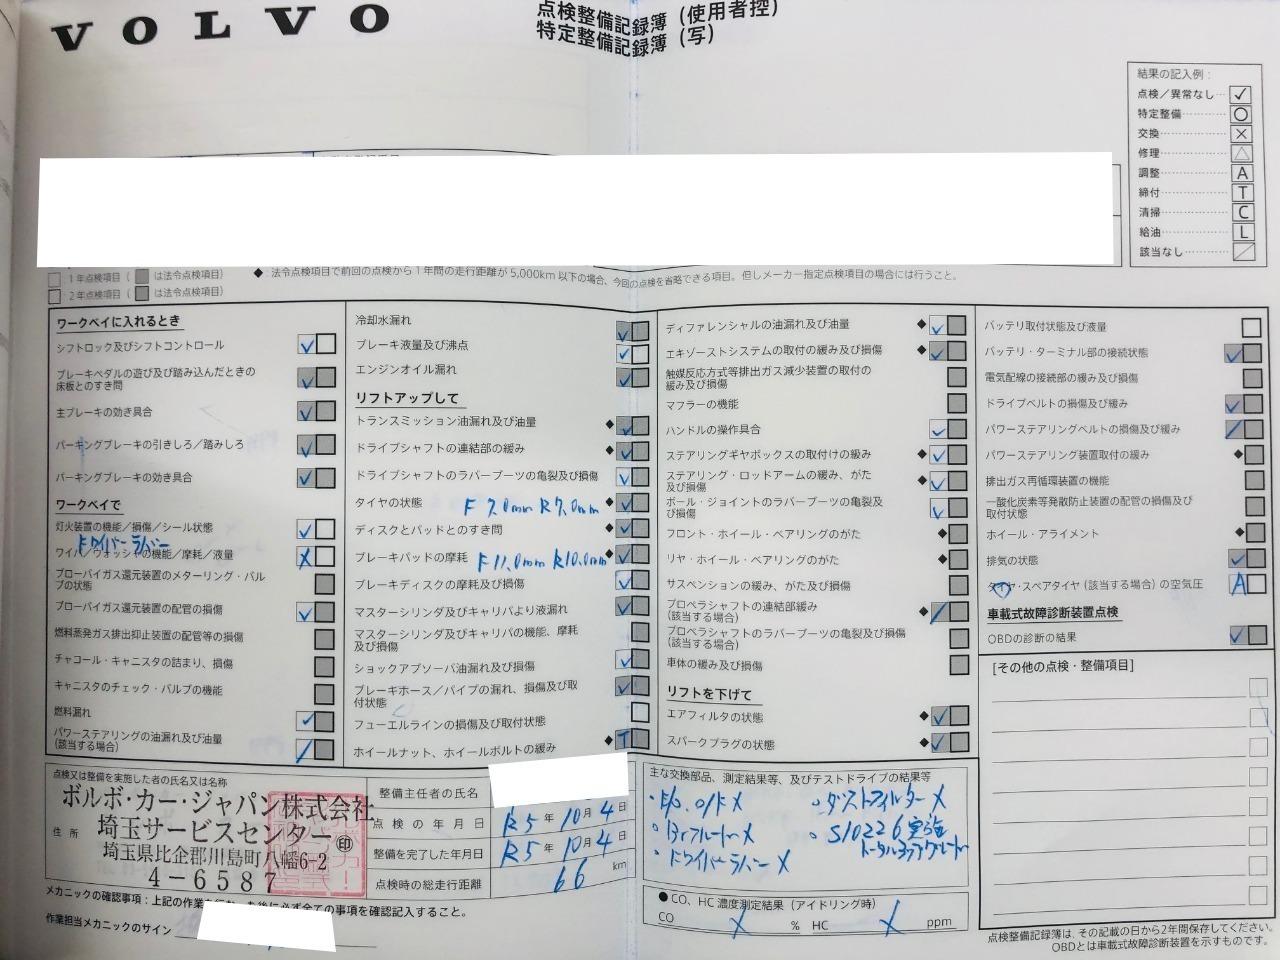 VOLVO
点検整備記録簿（使用者控）
特定整備記録簿（写）
結果の記入例：
点検／異常なし… ✓
特定整備… ○
交換… ×
修理… △
調整… A
締付… T
清掃… C
給油… L
該当なし… ／
1年点検項目（ は法令点検項目）
2年点検項目（ は法令点検項目）
◆：法令点検項目で前回の点検から1年間の走行距離が5,000km以下の場合、今回の点検を省略できる項目。但しメーカー指定点検項目の場合には行うこと。
ワークベイに入れるとき
シフトロック及びシフトコントロール ✓
ブレーキペダルの遊び及び踏み込んだときの
床板とのすき間 ✓
主ブレーキの効き具合 ✓
パーキングブレーキの引きしろ／踏みしろ ✓
パーキングブレーキの効き具合 ✓
ワークベイで
灯火装置の機能／損傷／シール状態 ✓
ドライバーラバー
ワイパ／ウォッシャの機能／摩耗／液量 ×
ブローバイガス還元装置のメターリング・バル
ブの状態
ブローバイガス還元装置の配管の損傷 ✓
燃料蒸発ガス排出抑止装置の配管等の損傷
チャコール・キャニスタの詰まり、損傷
キャニスタのチェック・バルブの機能
燃料漏れ ✓
パワーステアリングの油漏れ及び油量
（該当する場合） ／
冷却水漏れ ✓
ブレーキ液量及び沸点 ✓
エンジンオイル漏れ ✓
リフトアップして
トランスミッション油漏れ及び油量 ◆ ✓
ドライブシャフトの連結部の緩み ◆ ✓
ドライブシャフトのラバーブーツの亀裂及び損傷 ✓
タイヤの状態 F 7.0mm R 7.0mm ◆ ✓
ディスクとパッドとのすき間 ◆ ✓
ブレーキパッドの摩耗 F 11.0mm R 10.0mm ◆ ✓
ブレーキディスクの摩耗及び損傷 ✓
マスターシリンダ及びキャリパより液漏れ ✓
マスターシリンダ及びキャリパの機能、摩耗
及び損傷
ショックアブソーバ油漏れ及び損傷 ✓
ブレーキホース／パイプの漏れ、損傷及び取
付状態 ✓
フューエルラインの損傷及び取付状態
ホイールナット、ホイールボルトの緩み ◆ T
ディファレンシャルの油漏れ及び油量 ◆ ✓
エキゾーストシステムの取付の緩み及び損傷 ◆ ✓
触媒反応方式等排出ガス減少装置の取付の
緩み及び損傷
マフラーの機能
ハンドルの操作具合 ✓
ステアリングギヤボックスの取付けの緩み ◆ ✓
ステアリング・ロッドアームの緩み、がた
及び損傷 ◆ ✓
ボール・ジョイントのラバーブーツの亀裂及
び損傷 ✓
フロント・ホイール・ベアリングのがた ◆
リヤ・ホイール・ベアリングのがた ◆
サスペンションの緩み、がた及び損傷
プロペラシャフトの連結部緩み
（該当する場合） ◆ ／
プロペラシャフトのラバーブーツの亀裂及び損傷
（該当する場合）
車体の緩み及び損傷
リフトを下げて
エアフィルタの状態 ◆ ✓
スパークプラグの状態 ◆ ✓
バッテリ取付状態及び液量
バッテリ・ターミナル部の接続状態 ✓
電気配線の接続部の緩み及び損傷
ドライブベルトの損傷及び緩み ✓
パワーステアリングベルトの損傷及び緩み ／
パワーステアリング装置取付の緩み ◆
排出ガス再循環装置の機能
一酸化炭素等発散防止装置の配管の損傷及び
取付状態
ホイール・アライメント ◆
排気の状態 ✓
タイヤ・スペアタイヤ（該当する場合）の空気圧 A
車載式故障診断装置点検
OBDの診断の結果 ✓
[その他の点検・整備項目]
点検又は整備を実施した者の氏名又は名称
ボルボ・カー・ジャパン株式会社
住所 埼玉サービスセンター ㊞
埼玉県比企郡川島町八幡6-2
4-6587
整備主任者の氏名
点検の年月日 R5年10月4日
整備を完了した年月日 R5年10月4日
点検時の総走行距離 66 km
主な交換部品、測定結果等、及びテストドライブの結果等
・E/o. o/F × ・ダストフィルター ×
・Brフルード × ・S10226実施
・ドライバーラバー × トータルアップグレード
●CO、HC濃度測定結果（アイドリング時）
CO × % HC × ppm
メカニックの確認事項：上記の作業を行った後に必ず全ての事項を確認記入すること。
作業担当メカニックのサイン
点検整備記録簿は、その記載の日から2年間保存してください。
OBDとは車載式故障診断装置を示すものです。